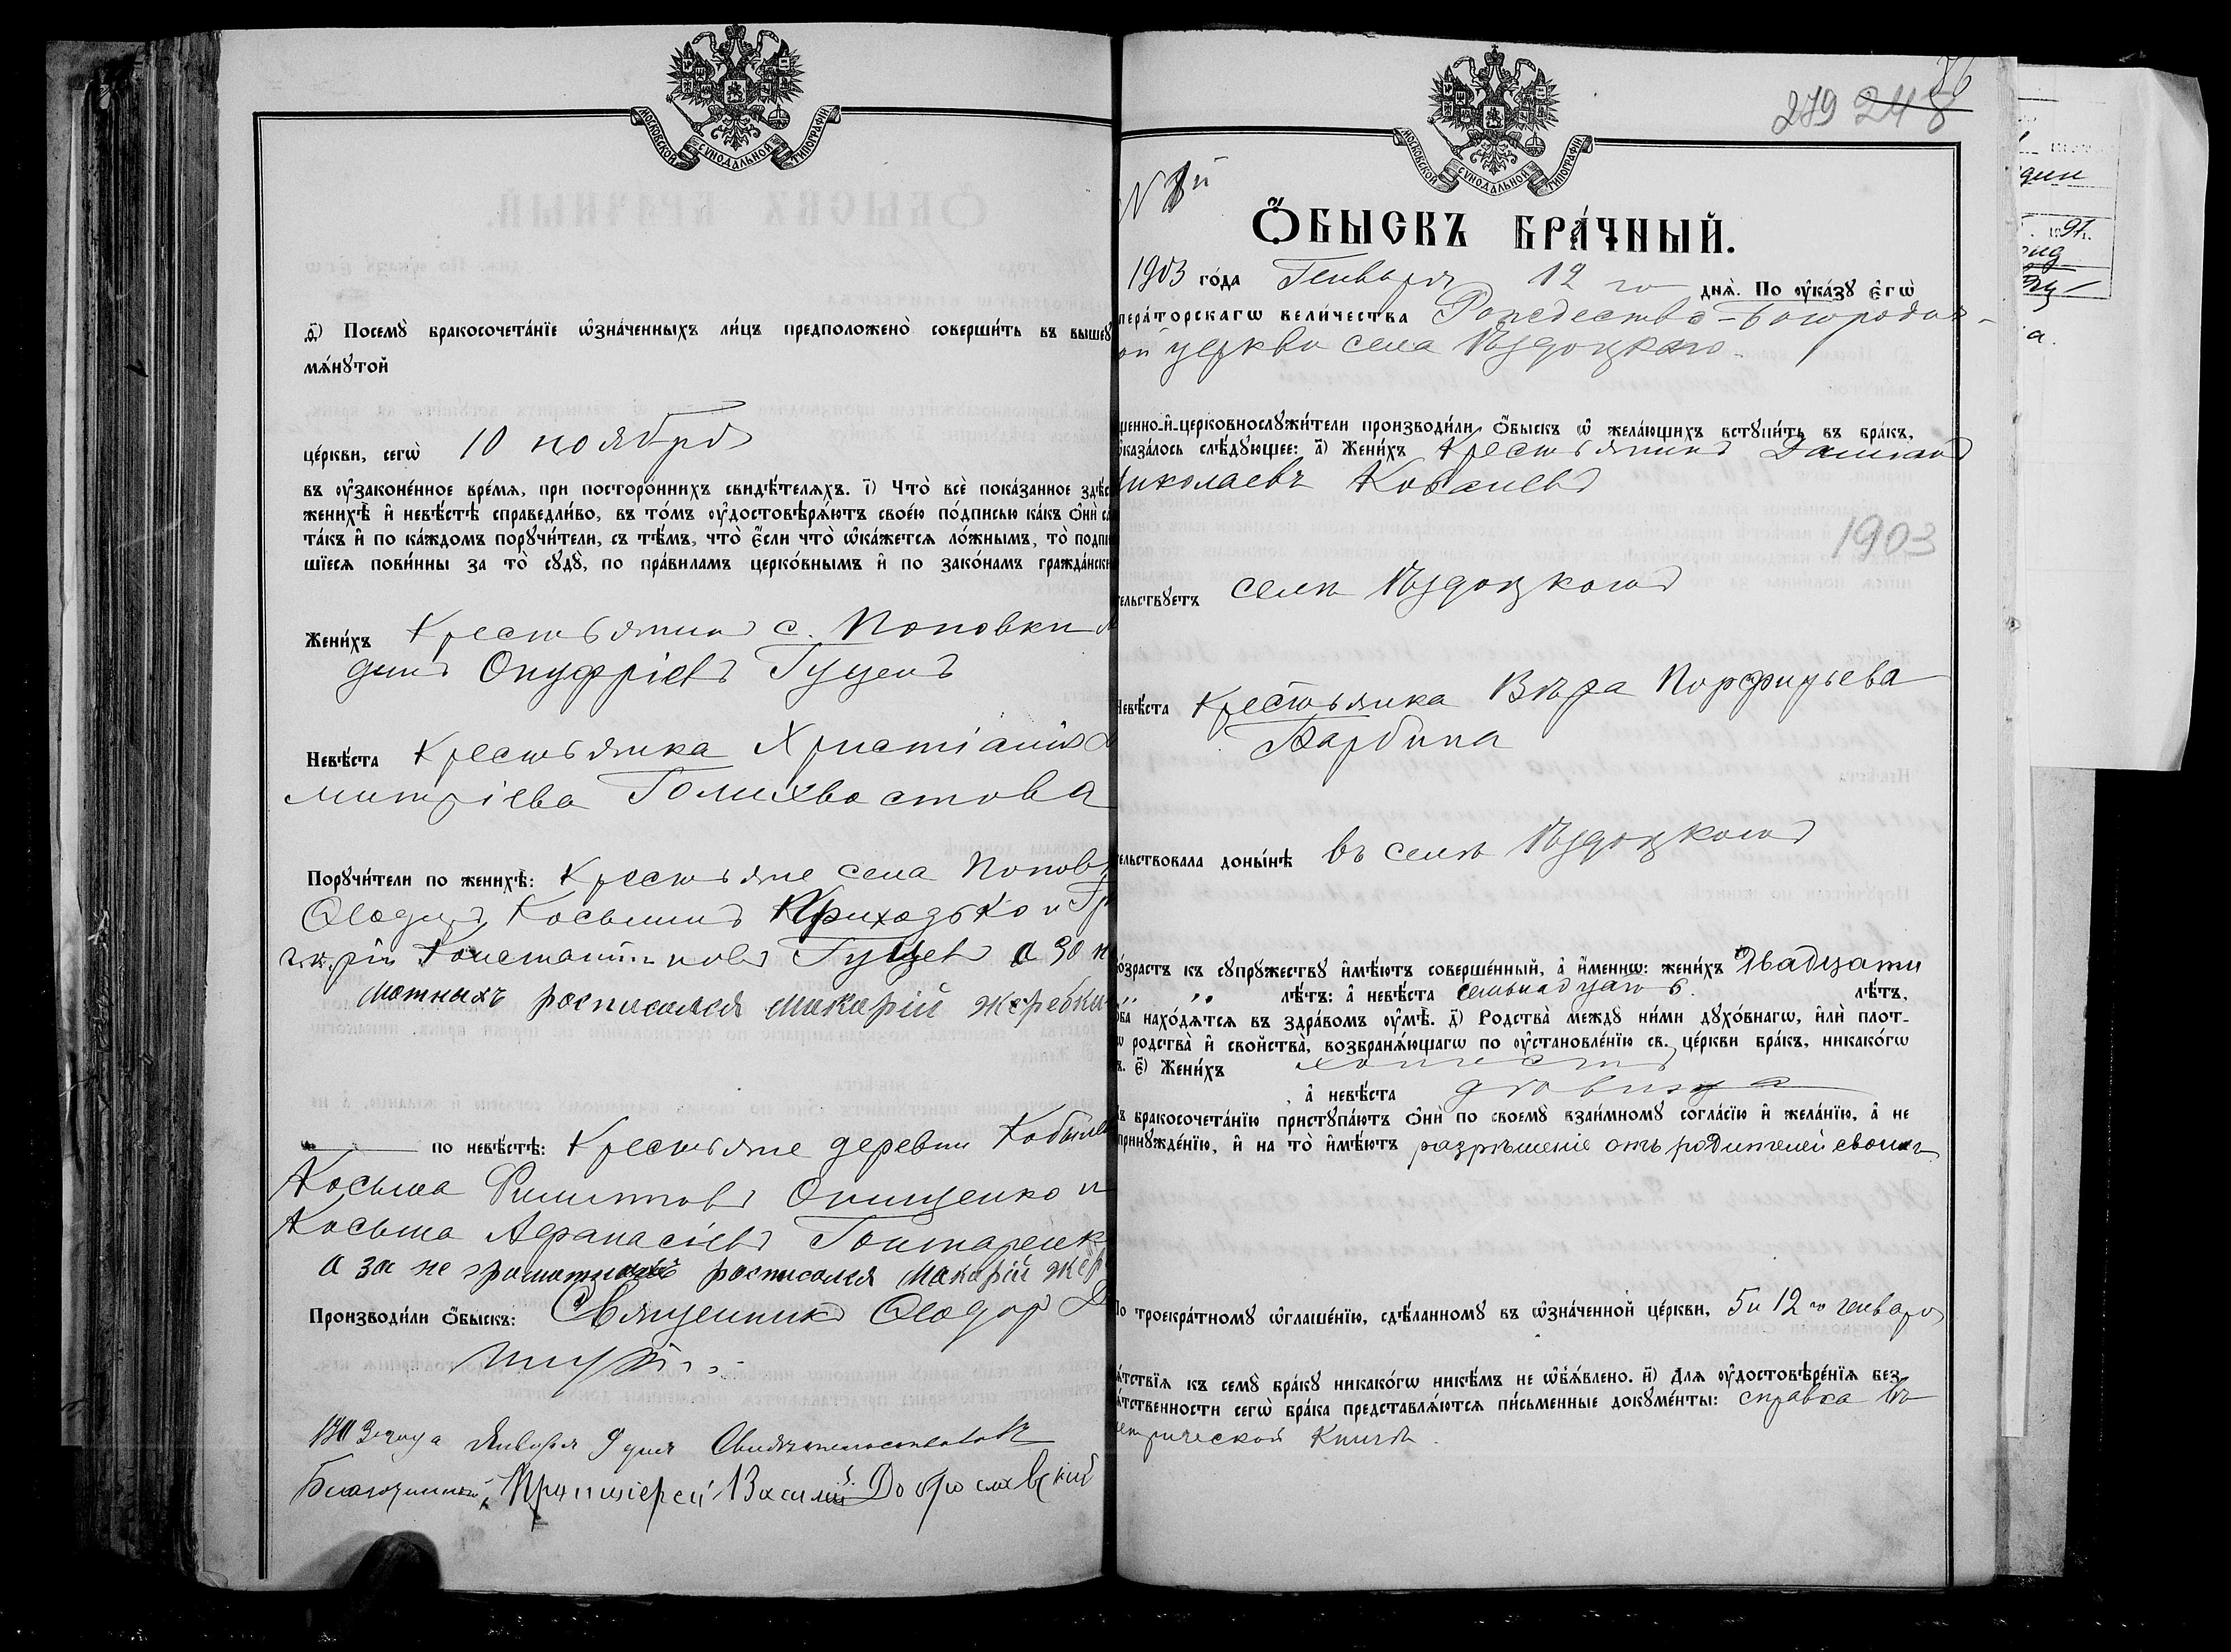 МОСКОВСКОЙ СѴНОДАЛЬНОЙ ТИПОГРАФІИ
Ѳ҃) Посемꙋ̀ бракосочета́нїе ѡ҆зна́ченныхъ ли́цъ предположено̀ соверши́ть въ вышеꙋ
мѧ́нꙋтой
це́ркви, сегѡ̀ 10 ноября
въ ᲂу҆законе́нное вре́мѧ, при посторо́ннихъ свидѣ́телѧхъ. і҃) Что̀ всѐ пока́занное здѣс
женихѣ̀ и҆ невѣ́стѣ справедли́во, въ то́мъ ᲂу҆достовѣрѧ́ютъ свое́ю по́дписью ка́къ ѻ҆нѝ са
та́къ и҆ по ка́ждомъ порꙋчи́тели, съ тѣ́мъ, что̀ є҆́сли что̀ ѡ҆ка́жетсѧ ло́жнымъ, то̀ подпи
шїесѧ пови́нны за то̀ сꙋдꙋ̀, по пра́виламъ церко́внымъ и҆ по зако́намъ гражда́нски
Жени́хъ Крестьянинъ с. Поповки
динъ Онуфріевъ Гуцевъ
Невѣ́ста Крестьянка Христіанія
митріева Голихвостова
Порꙋчи́тели по женихѣ̀: Крестьяне села Попов
Косьминъ Приходько и Гр
рій Константиновъ Гуцев а за н
мотныхъ росписался Макарій Жеребки
по невѣ́стѣ: Крестьяне деревни Кобыле
Косьма Филиптовъ Онищенко и
Косьма Афанасіевъ Гонтаренк
а за не грамотныхъ росписался Макарій Жер
Производи́ли ѻ҆́быскъ: Священникъ Ѳеодоръ
1903 года Января 9 дня Свидѣтельствовалъ
Благочинный, Протоіерей Василій Доброславскій
МОСКОВСКОЙ СѴНОДАЛЬНОЙ ТИПОГРАФІИ
86
279 248
N 1й
Ѻ҆́БЫСКЪ БРА́ЧНЫЙ.
1903 го́да Генваря 12 го днѧ̀. По ᲂу҆ка́зꙋ є҆гѡ̀
пера́торскагѡ вели́чества Рождество-Богородич-
ой церкви села Ѣздоцкаго
щенно-и҆-церковнослꙋжи́тели производи́ли ѻ҆́быскъ ѡ҆ жела́ющихъ встꙋпи́ть въ бра́къ,
ѡ҆каза́лось слѣ́дꙋющее: а҃) Жени́хъ Крестьянинъ Даміанъ
Николаевъ Ковалевъ
1903
ельствꙋетъ селѣ Ѣздоцкомъ
Невѣ́ста Крестьянка Вѣра Порфирьева
Барбина
ельствовала доны́нѣ въ селѣ Ѣздоцкомъ
во́зрастъ къ сꙋпрꙋ́жествꙋ и҆мѣ́ютъ соверше́нный, а҆ и҆́меннѡ: жени́хъ двадцати
" " лѣ́тъ: а҆ невѣ́ста семьнадцать лѣ́тъ,
ѻ҆́ба нахо́дѧтсѧ въ здра́вомъ ᲂу҆мѣ̀. д҃) Родства̀ междꙋ ни́ми дꙋхо́внагѡ, и҆лѝ плот-
ѡ родства̀ и҆ свойства̀, возбранѧ́ющагѡ по ᲂу҆становле́нїю св. це́ркви бра́къ, никако́гѡ
ъ. є҃) Жени́хъ холостъ
а҆ невѣ́ста дѣвица
ъ бракосочета́нїю пристꙋпа́ютъ ѻ҆нѝ по своемꙋ̀ взаи́мномꙋ согла́сїю и҆ жела́нїю, а҆ не
принꙋжде́нїю, и҆ на то̀ и҆мѣ́ютъ разрѣшеніе отъ родителей своихъ
По троекра́тномꙋ ѡ҆глаше́нїю, сдѣ́ланномꙋ въ ѡ҆зна́ченной це́ркви, 5 и 12 го генваря
ѧ́тствїѧ къ семꙋ бра́кꙋ никако́гѡ никѣ́мъ не ѡ҆б̾ѧ́влено. и҃) Длѧ ᲂу҆достовѣре́нїѧ без
ѧ́тственности сегѡ̀ бра́ка представлѧ́ютсѧ пи́сьменные докꙋме́нты: справка въ
етрической Книгѣ.